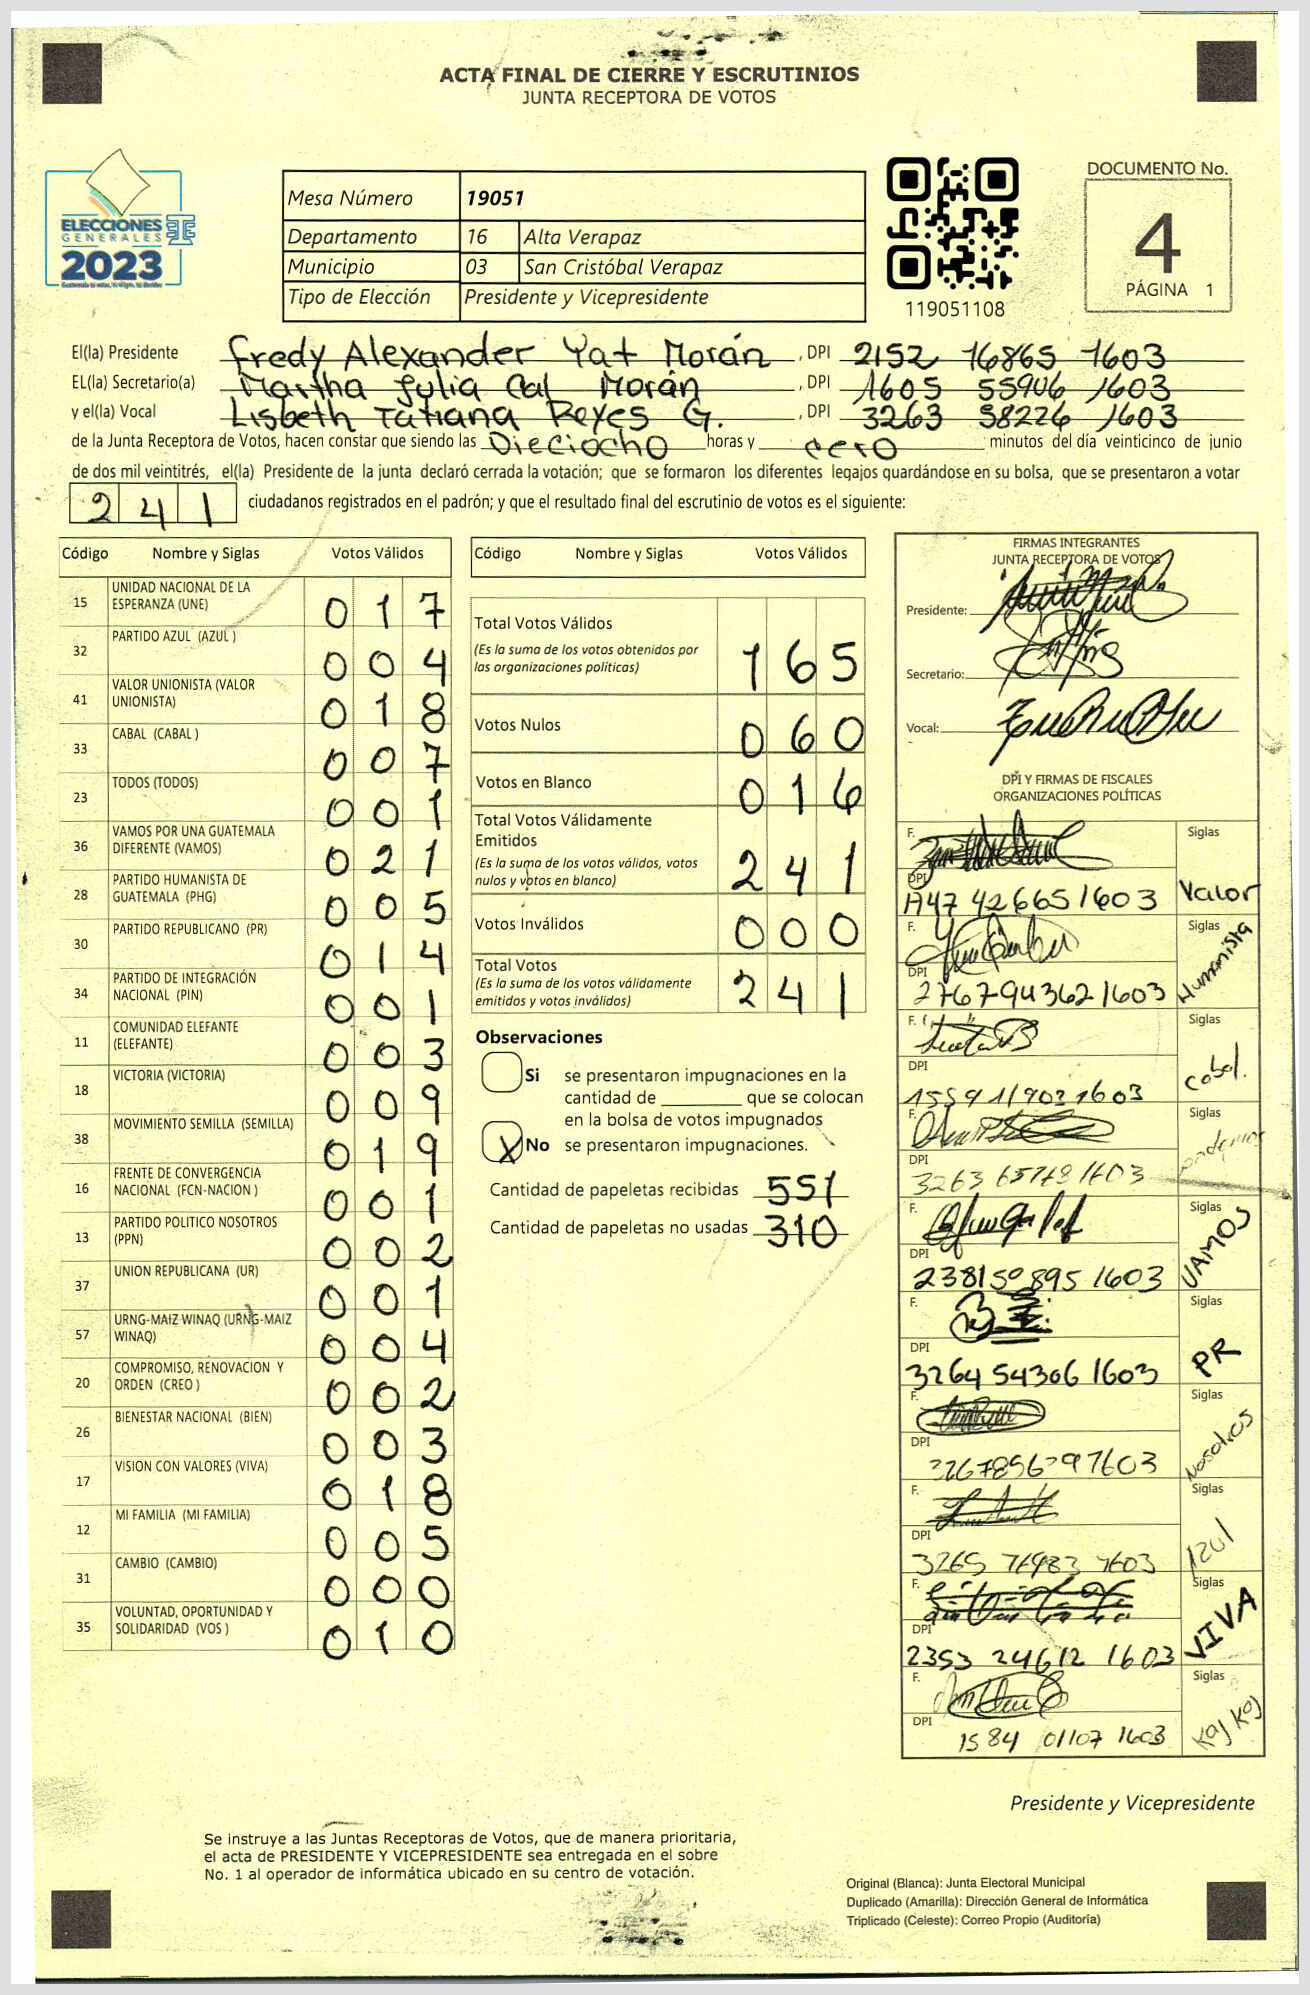 ACTA FINAL DE CIERRE Y ESCRUTINIOS
JUNTA RECEPTORA DE VOTOS
ELECCIONES
GENERALES
2023
Mesa Número 19051
Departamento 16 Alta Verapaz
Municipio 03 San Cristóbal Verapaz
Tipo de Elección Presidente y Vicepresidente
119051108
DOCUMENTO No.
4
PÁGINA 1
El(la) Presidente Fredy Alexander Yat Morán, DPI 2152 16865 1603
EL(la) Secretario(a) Martha Julia Cal Morán, DPI 1605 55906 1603
y el(la) Vocal Lisbeth Tatiana Reyes G., DPI 3263 58226 1603
de la Junta Receptora de Votos, hacen constar que siendo las Dieciocho horas y cero minutos del día veinticinco de junio
de dos mil veintitrés, el(la) Presidente de la junta declaró cerrada la votación; que se formaron los diferentes legajos guardándose en su bolsa, que se presentaron a votar
241 ciudadanos registrados en el padrón; y que el resultado final del escrutinio de votos es el siguiente:
Código Nombre y Siglas Votos Válidos
15 UNIDAD NACIONAL DE LA ESPERANZA (UNE) 017
32 PARTIDO AZUL (AZUL ) 004
41 VALOR UNIONISTA (VALOR UNIONISTA) 018
33 CABAL (CABAL ) 007
23 TODOS (TODOS) 001
36 VAMOS POR UNA GUATEMALA DIFERENTE (VAMOS) 021
28 PARTIDO HUMANISTA DE GUATEMALA (PHG) 005
30 PARTIDO REPUBLICANO (PR) 014
34 PARTIDO DE INTEGRACIÓN NACIONAL (PIN) 001
11 COMUNIDAD ELEFANTE (ELEFANTE) 003
18 VICTORIA (VICTORIA) 009
38 MOVIMIENTO SEMILLA (SEMILLA) 019
16 FRENTE DE CONVERGENCIA NACIONAL (FCN-NACION ) 001
13 PARTIDO POLITICO NOSOTROS (PPN) 002
37 UNION REPUBLICANA (UR) 001
57 URNG-MAIZ WINAQ (URNG-MAIZ WINAQ) 004
20 COMPROMISO, RENOVACION Y ORDEN (CREO ) 002
26 BIENESTAR NACIONAL (BIEN) 003
17 VISION CON VALORES (VIVA) 018
12 MI FAMILIA (MI FAMILIA) 005
31 CAMBIO (CAMBIO) 000
35 VOLUNTAD, OPORTUNIDAD Y SOLIDARIDAD (VOS ) 010
Código Nombre y Siglas Votos Válidos
Total Votos Válidos 165
(Es la suma de los votos obtenidos por
las organizaciones políticas)
Votos Nulos 060
Votos en Blanco 016
Total Votos Válidamente
Emitidos 241
(Es la suma de los votos válidos, votos
nulos y votos en blanco)
Votos Inválidos 000
Total Votos 241
(Es la suma de los votos válidamente
emitidos y votos inválidos)
Observaciones
Si se presentaron impugnaciones en la
cantidad de ________ que se colocan
en la bolsa de votos impugnados
X No se presentaron impugnaciones.
Cantidad de papeletas recibidas 551
Cantidad de papeletas no usadas 310
FIRMAS INTEGRANTES
JUNTA RECEPTORA DE VOTOS
Presidente:
Secretario:
Vocal:
DPI Y FIRMAS DE FISCALES
ORGANIZACIONES POLÍTICAS
F. Siglas
DPI Valor
F. Siglas
DPI 2767943621603 Humanista
F. Siglas
DPI Cabal.
F. Siglas
DPI Podemos
F. Siglas
DPI 238150895 1603 VAMOS
F. Siglas
DPI 3264 54306 1603 PR
F. Siglas
DPI Nosotros
F. Siglas
DPI Azul
F. Siglas
DPI 2353 24612 1603 VIVA
F. Siglas
DPI 1584 01107 1603 Kaj Koj
Presidente y Vicepresidente
Se instruye a las Juntas Receptoras de Votos, que de manera prioritaria,
el acta de PRESIDENTE Y VICEPRESIDENTE sea entregada en el sobre
No. 1 al operador de informática ubicado en su centro de votación.
Original (Blanca): Junta Electoral Municipal
Duplicado (Amarilla): Dirección General de Informática
Triplicado (Celeste): Correo Propio (Auditoría)